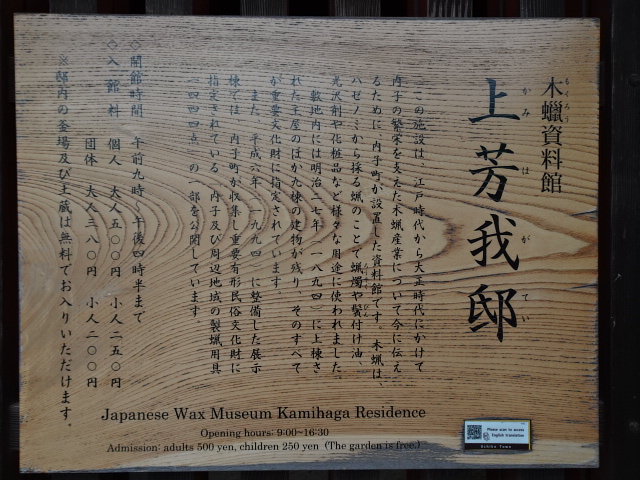 木蠟資料館
もくろう
上芳我邸
かみはがてい
この施設は、江戸時代から大正時代にかけて
内子の繁栄を支えた木蠟産業について今に伝え
るために、内子町が設置した資料館です。木蠟は、
ハゼノミから採る蠟のことで蠟燭や鬢付け油、
光沢剤や化粧品など様々な用途に使われました。
敷地内には明治二七年（一八九四）に上棟さ
れた主屋のほか九棟の建物が残り、そのすべて
が重要文化財に指定されています。
また、平成六年（一九九四）に整備した展示
棟では、内子町が収集し重要有形民俗文化財に
指定されている「内子及び周辺地域の製蠟用具
一四四四点」の一部を公開しています。
◇開館時間 午前九時〜午後四時半まで
◇入館料 個人 大人五〇〇円 小人二五〇円
団体 大人三八〇円 小人二〇〇円
※邸内の釜場及び土蔵は無料でお入りいただけます。
Japanese Wax Museum Kamihaga Residence
Opening hours: 9:00~16:30
Admission: adults 500 yen, children 250 yen (The garden is free.)
Please scan to access
English translation
Uchiko Town